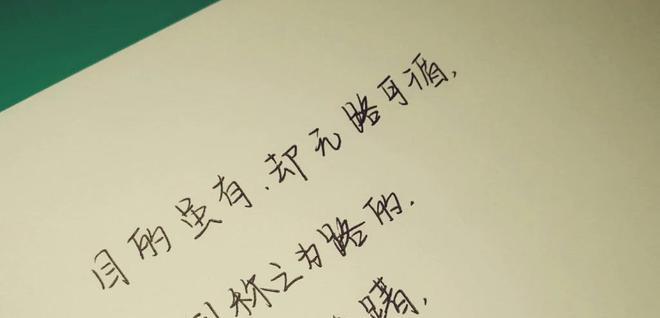 目的虽有.却无路可循,
称之为路的.